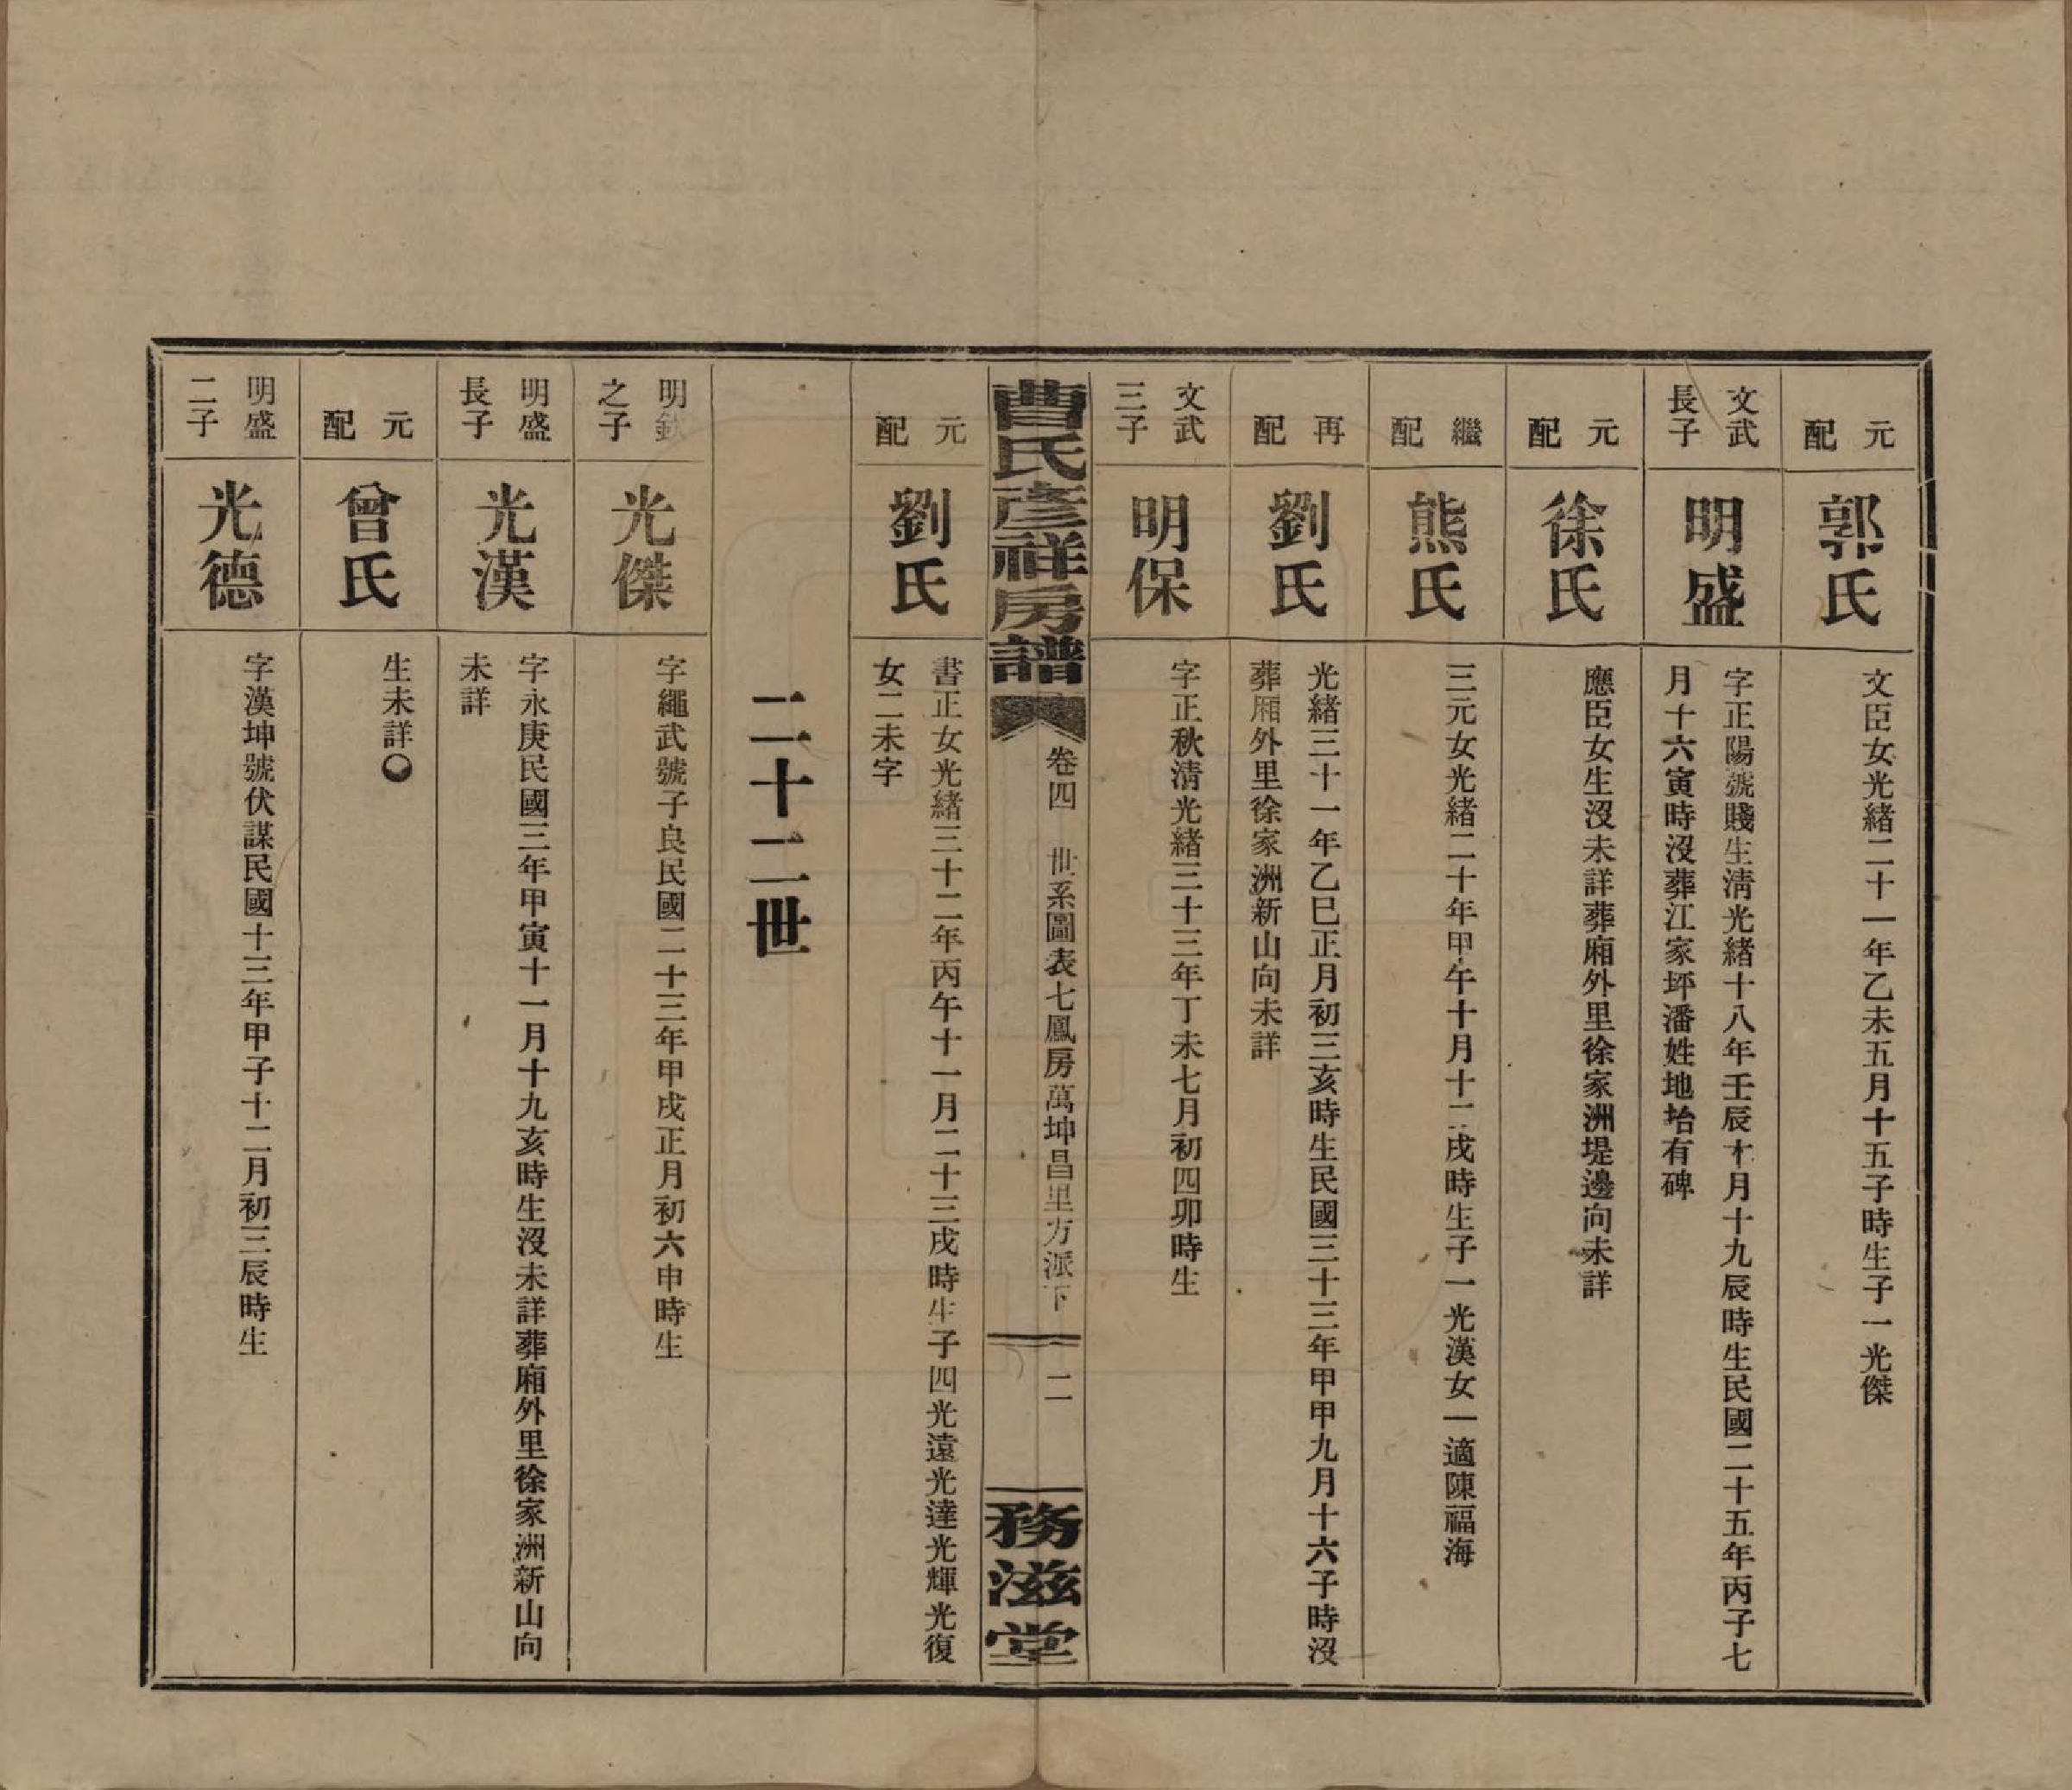 元配
郭氏
文臣女光緒二十一年乙未五月十五子時生子一光傑
文武長子
明盛
字正陽號賤生淸光緒十八年壬辰十月十九辰時生民國二十五年丙子七
月十六寅時沒葬江家坪潘姓地坮有碑
元配
徐氏
應臣女生沒未詳葬廂外里徐家洲堤邊向未詳
繼配
熊氏
三元女光緒二十年甲午十月十二戌時生子一光漢女一適陳福海
再配
劉氏
光緒三十一年乙巳正月初三亥時生民國三十三年甲甲九月十六子時沒
葬廂外里徐家洲新山向未詳
文武三子
明保
字正秋淸光緒三十三年丁未七月初四卯時生
曹氏彦祥房譜
卷四　世系圖表七鳳房萬坤昌里方派下
二
務滋堂
元配
劉氏
書正女光緒三十二年丙午十一月二十三戌時生子四光遠光達光輝光復
女二未字
二十二世
明欽之子
光傑
字繩武號子良民國二十三年甲戌正月初六申時生
明盛長子
光漢
字永庚民國三年甲寅十一月十九亥時生沒未詳葬廂外里徐家洲新山向
未詳
元配
曾氏
生未詳
明盛二子
光德
字漢坤號伏謀民國十三年甲子十二月初三辰時生